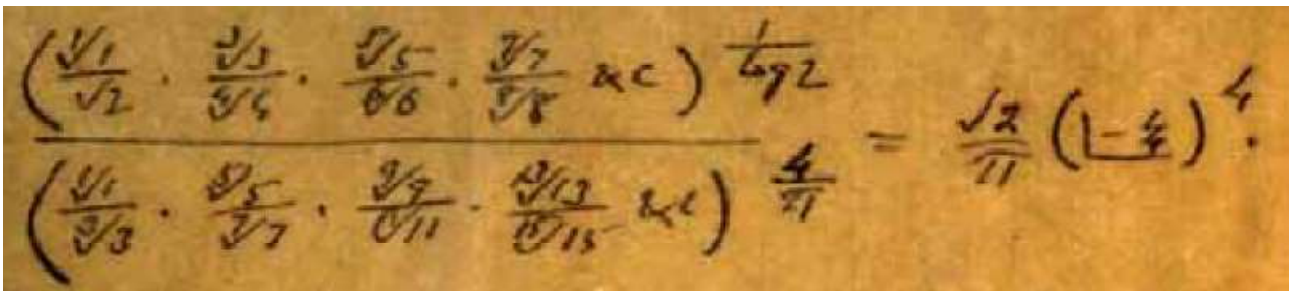 (\frac{\sqrt[1]{1}}{\sqrt{2}} \cdot \frac{\sqrt[3]{3}}{\sqrt[4]{4}} \cdot \frac{\sqrt[5]{5}}{\sqrt[6]{6}} \cdot \frac{\sqrt[7]{7}}{\sqrt[8]{8}} &c)^{\frac{1}{\log 2}}
(\frac{\sqrt[1]{1}}{\sqrt[3]{3}} \cdot \frac{\sqrt[5]{5}}{\sqrt[7]{7}} \cdot \frac{\sqrt[9]{9}}{\sqrt[11]{11}} \cdot \frac{\sqrt[13]{13}}{\sqrt[15]{15}} &c)^{\frac{4}{π}} = \frac{\sqrt{2}}{π} (|\underline{-\frac{1}{4}})^4.